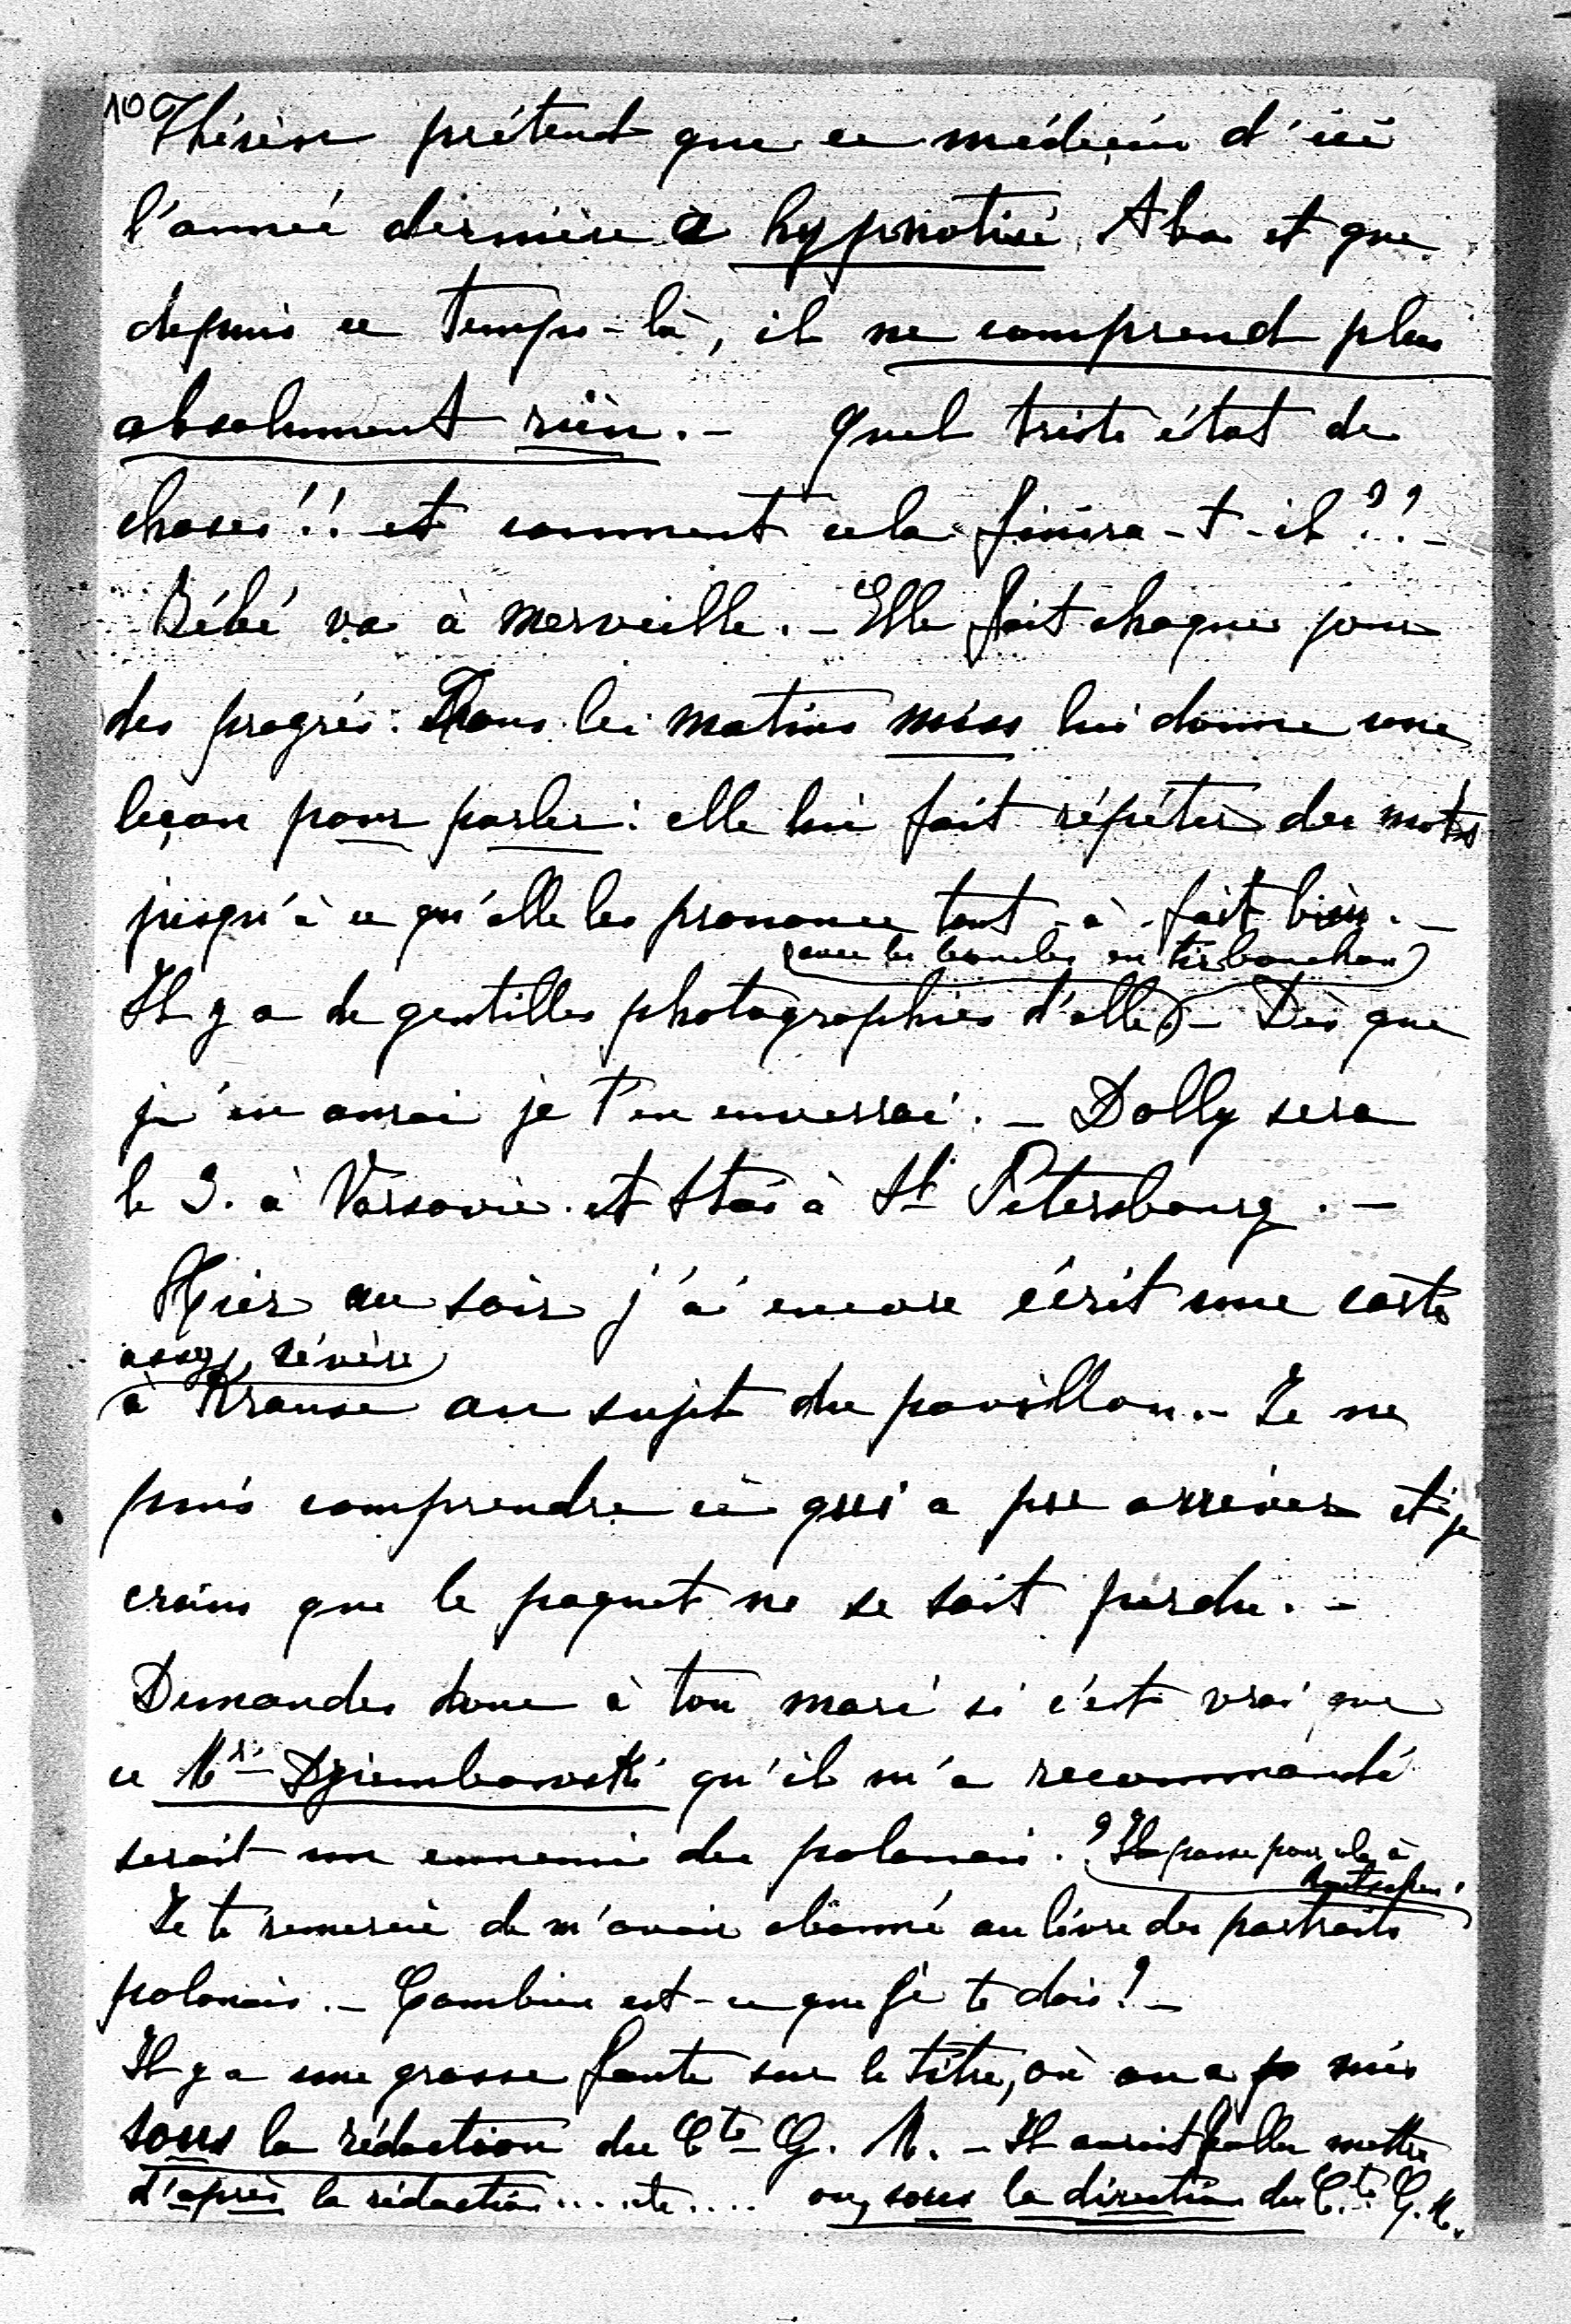 100
Thérèse prétend que ce médecin d'ici
l'année dernière a hypnotisé Aba et que
depuis ce temps-là, il ne comprend plus
absolument rien. – Quel triste état de
choses!! et comment cela finira-t-il??. –
Bébé va à merveille. – Elle fait chaque jour
des progrès. Tous les matins miss lui donne une
leçon pour parler: elle lui fait répéter des mots
jusqu'à ce qu'elle les prononce tout-à-fait bien. –
(avec les boucles en tirbouchon)
Il y a de gentilles photographies d'elle. – Dès que
j'en aurai je t'en enverrai. – Dolly sera
le 3. à Varsovie et Stas à St Pétersbourg. –
Hier au soir j'ai encore écrit une carte
assez sévère
à Krause au sujet du pavillon. – Je ne
puis comprendre ce qui a pu arriver et je
crains que le paquet ne se soit perdu. –
Demandes donc à ton mari si c'est vrai que
ce Mr Dziembowski qu'il m'a recommandé
serait un ennemi des polonais.? Il passe pour cela à
Je te remercie de m'avoir abonné au livre des portraits
polonais. – Combien est-ce que je te dois? –
Il y a une grosse faute sur le titre, où on a mis
sous la rédaction du Cte G. M. – Il aurait fallu mettre
d'après la rédaction.... etc.... ou, sous la direction du Cte G. M.